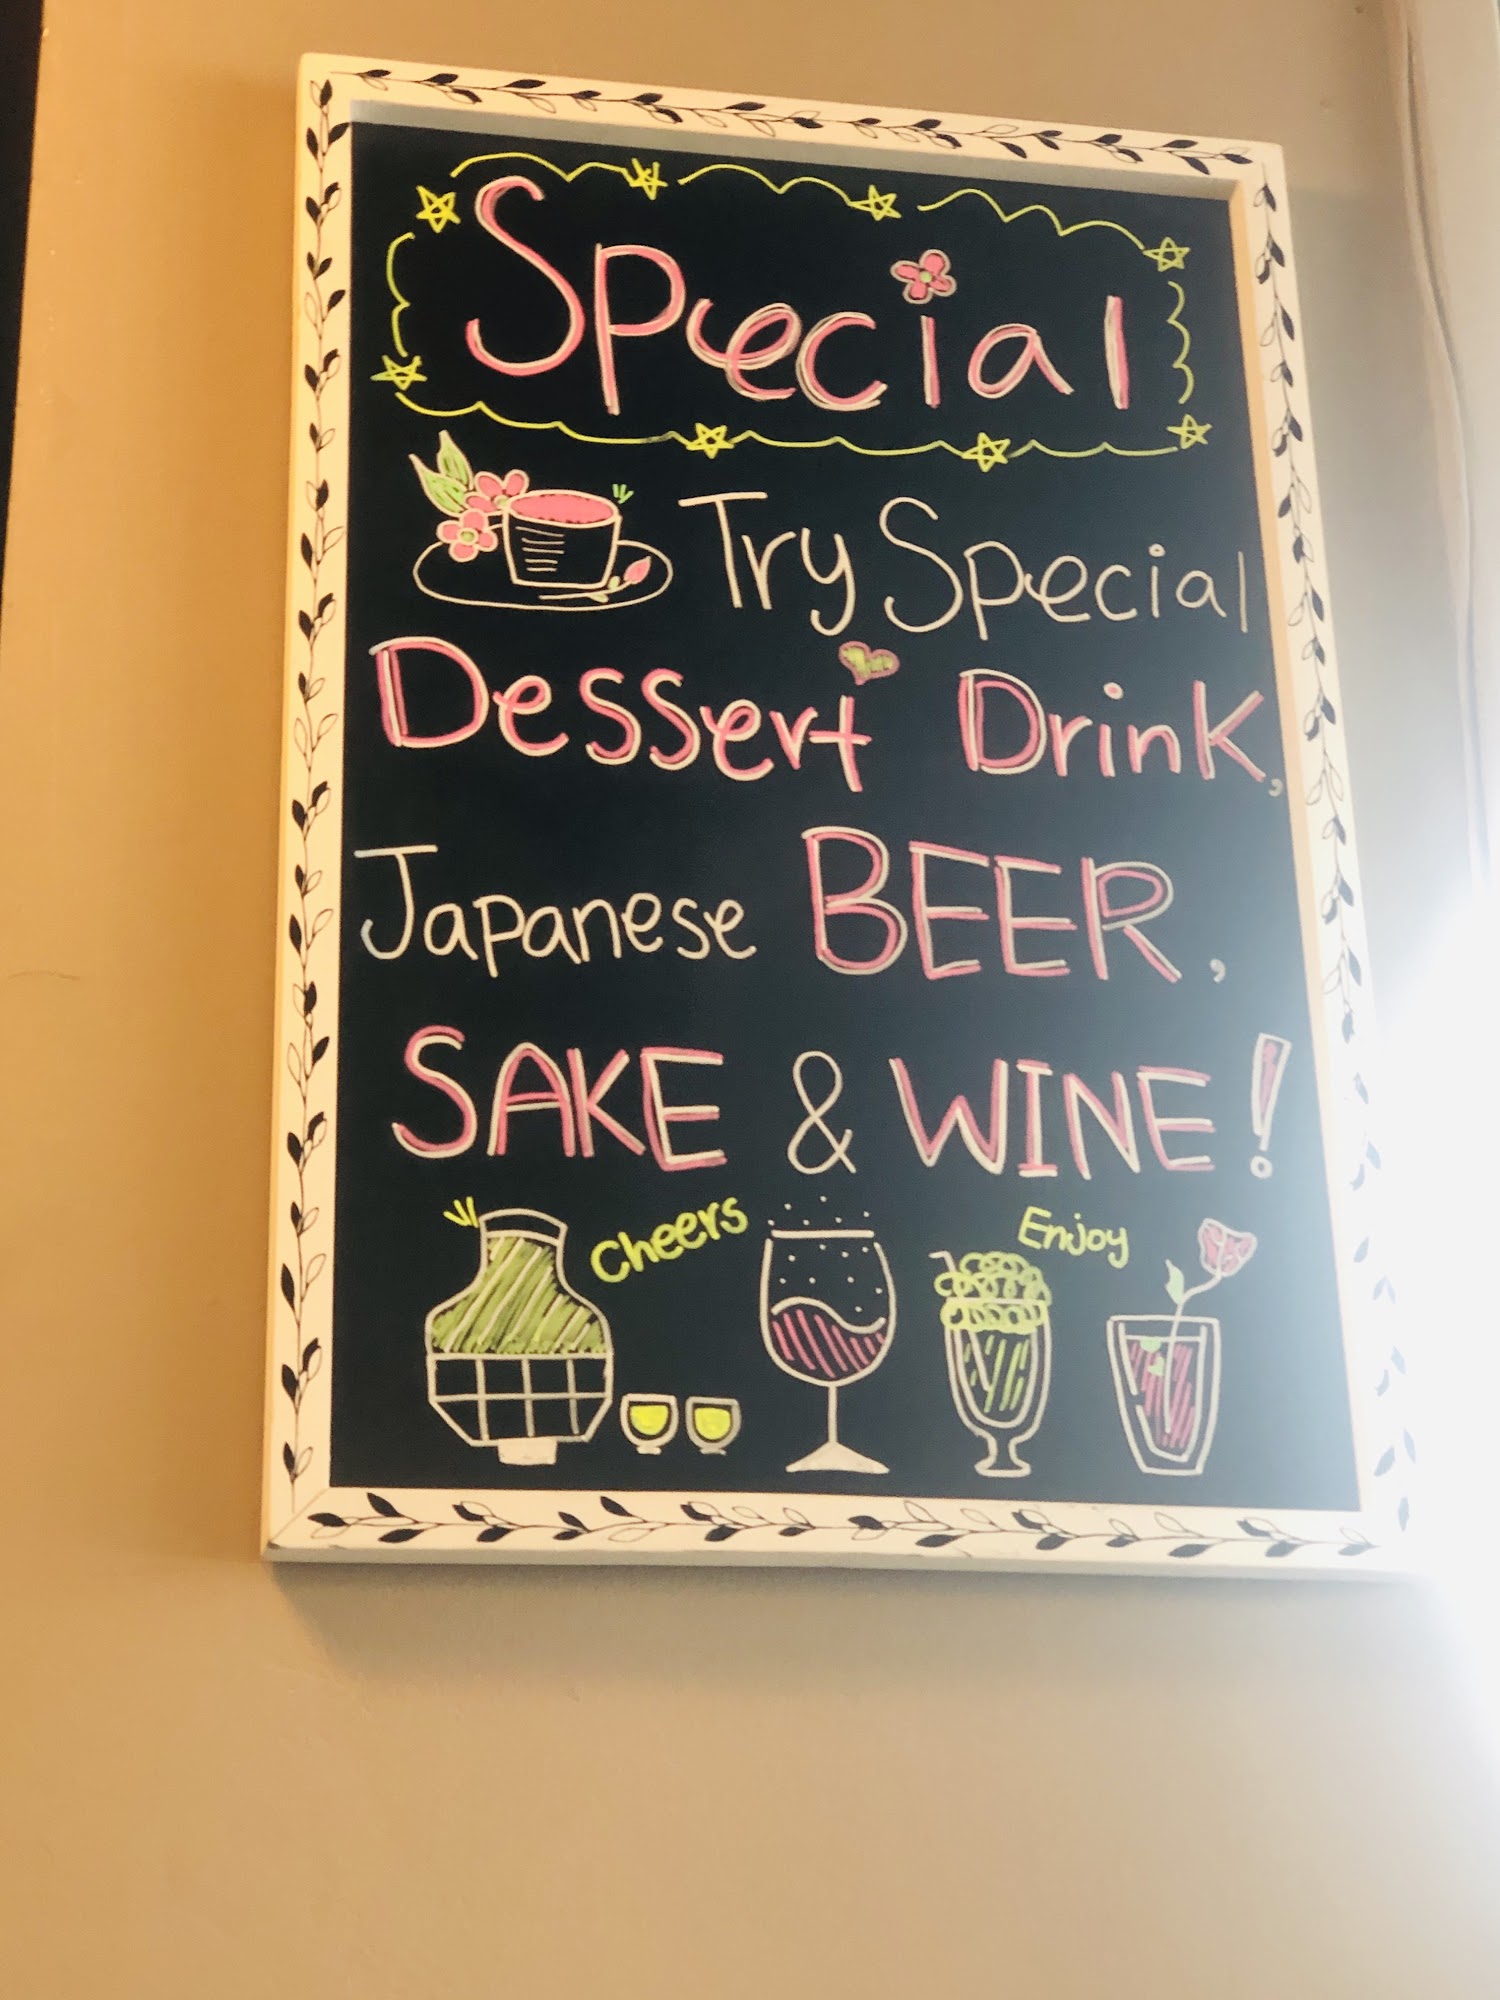 Special
Try Special
Dessert Drink,
Japanese BEER,
SAKE & WINE!
Cheers
Enjoy